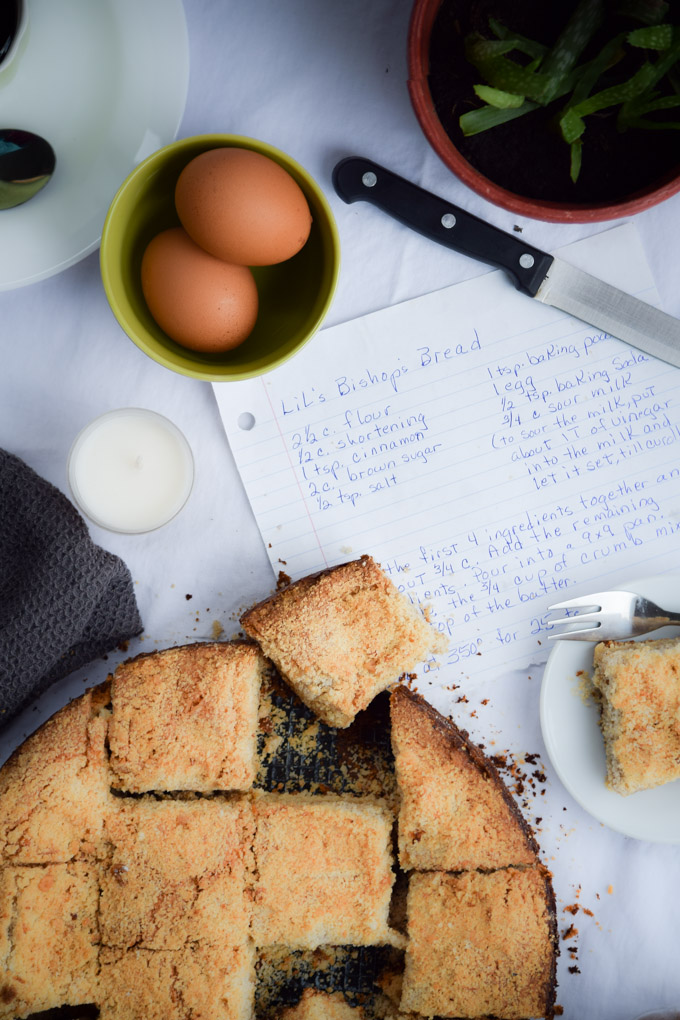 LiL's Bishop's Bread
2½ c. flour
½ c. shortening
1 tsp. cinnamon
2 c. brown sugar
½ tsp. salt
1 tsp. baking
1 egg
½ tsp. baking soda
¾ c sour milk
(to sour the milk, put
about 1T of vinegar
into the milk and
let it set, till
the first 4 ingredients together
¾ c. Add the remaining
Pour into a 9x9 pan.
the ¾ cup of crumb
of the batter.
350° for